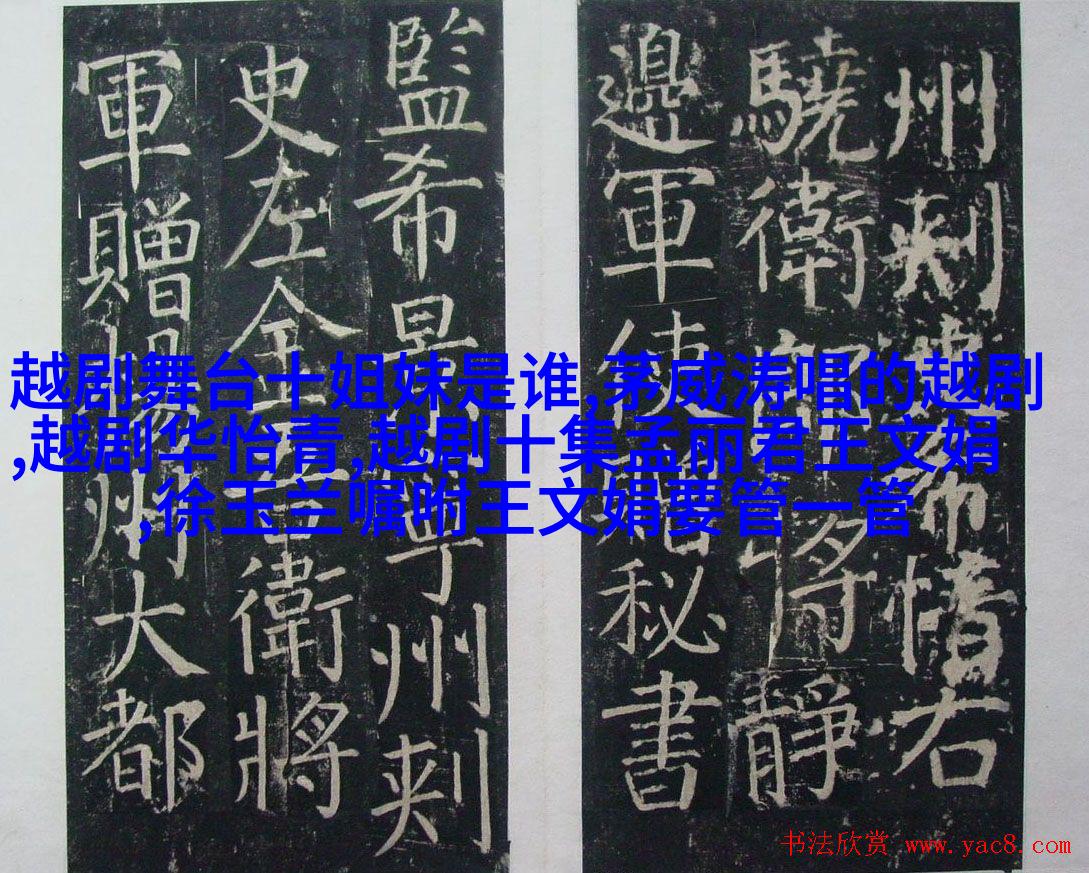 越剧舞台十姐妹是谁,茅威涛唱的越剧
,越剧华怡青,越剧十集孟丽君王文娟
,徐玉兰嘱咐王文娟要管一管
州刺希惜右
驍衛將靜
邊軍使秘書
監希景州刺
史左金衛將
軍贈州大都
书法欣赏 www.yac8.com